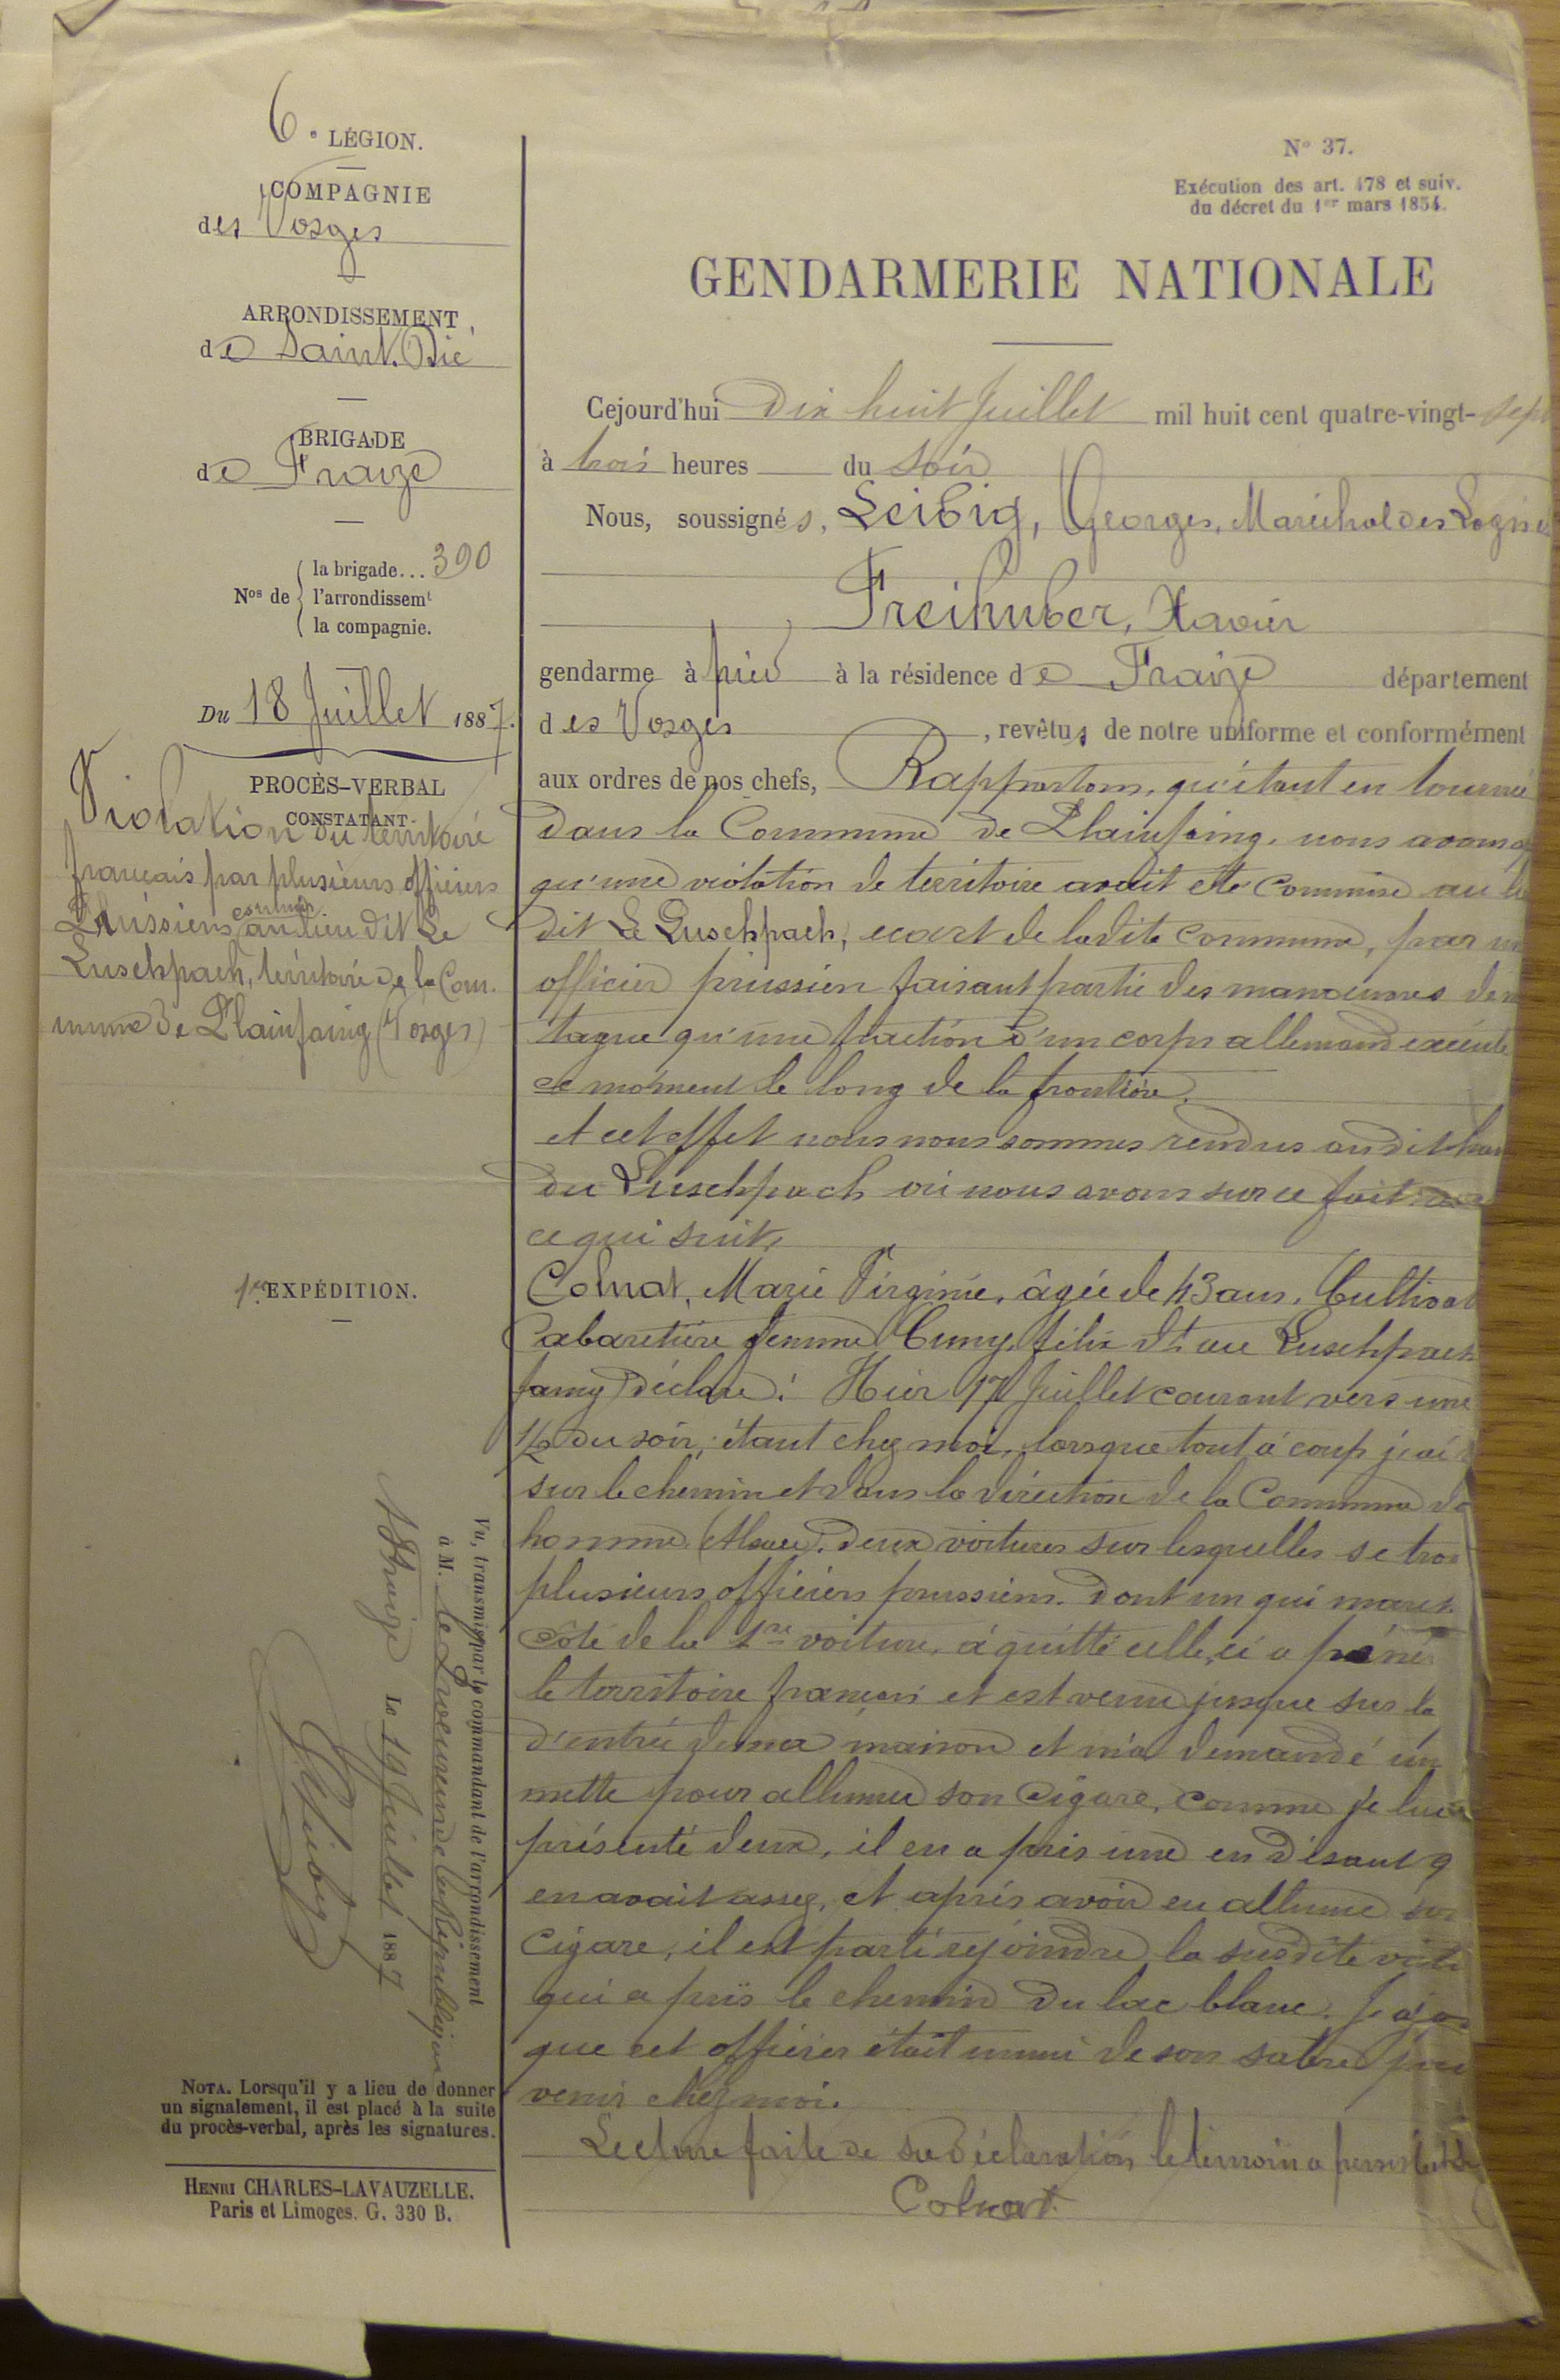 6e LÉGION.
COMPAGNIE
des Vosges
ARRONDISSEMENT
de Saint-Dié
BRIGADE
de Fraize
Nos de
la brigade... 390
l'arrondissemt
la compagnie.
Du 18 Juillet 1887.
PROCÈS-VERBAL
CONSTATANT
Violation du territoire
français par plusieurs officiers
Prussiens commise au lieu dit Le
Luschpach, territoire de la Com-
mune de Plainfaing (Vosges)
1re EXPÉDITION.
Vu, transmis par le commandant de l'arrondissement
à M. le Procureur de la République
A Fraize Le 19 Juillet 1887
NOTA. Lorsqu'il y a lieu de donner
un signalement, il est placé à la suite
du procès-verbal, après les signatures.
HENRI CHARLES-LAVAUZELLE.
Paris et Limoges. G. 330 B.
No 37.
Exécution des art. 478 et suiv.
du décret du 1er mars 1854.
GENDARMERIE NATIONALE
Cejourd'hui dix huit Juillet mil huit cent quatre-vingt-sept
à trois heures du soir
Nous, soussignés, Leibig, Georges, Maréchal des Logis
Freihuber, Xavier
gendarme à pied à la résidence de Fraize département
des Vosges, revêtus de notre uniforme et conformément
aux ordres de nos chefs, Rapportons, qu'étant en tournée
dans la Commune de Plainfaing, nous avons
qu'une violation de territoire avait été commise au
dit Le Luschpach, ecart de ladite commune, par un
officier prussien faisant partie des manoeuvres de
tagne qu'une fraction d'un corps allemand exécute
ce moment le long de la frontière.
A cet effet nous nous sommes rendus audit
du Luschpach où nous avons sur ce fait
ce qui suit,
Colnat, Marie Virginie, âgée de 43 ans, Cultivat
Cabaretière femme Cuny, félix dt au Luschpach
faing déclare: Hier 17 Juillet courant vers une
1/2 du soir, étant chez moi, lorsque tout à coup j'ai
sur le chemin et dans la direction de la Commune de
homme (Alsace). deux voitures sur lesquelles se trou
plusieurs officiers prussiens. dont un qui march
côté de la 1re voiture, à quitté celle ci a pénè
le territoire français et est venu jusque sur la
d'entrée de ma maison et m'a demandé un
mette pour allumer son Cigare, comme je lui
présenté deux, il en a pris une en disant q
en avait assez, et après avoir eu allumé son
Cigare, il est parti rejoindre la susdite voitu
qui a pris le chemin du lac blanc. J'ajou
que cet officier était muni de son sabre pour
venir chez moi.
Lecture faite de sa déclaration le témoin a persisté
Colnat